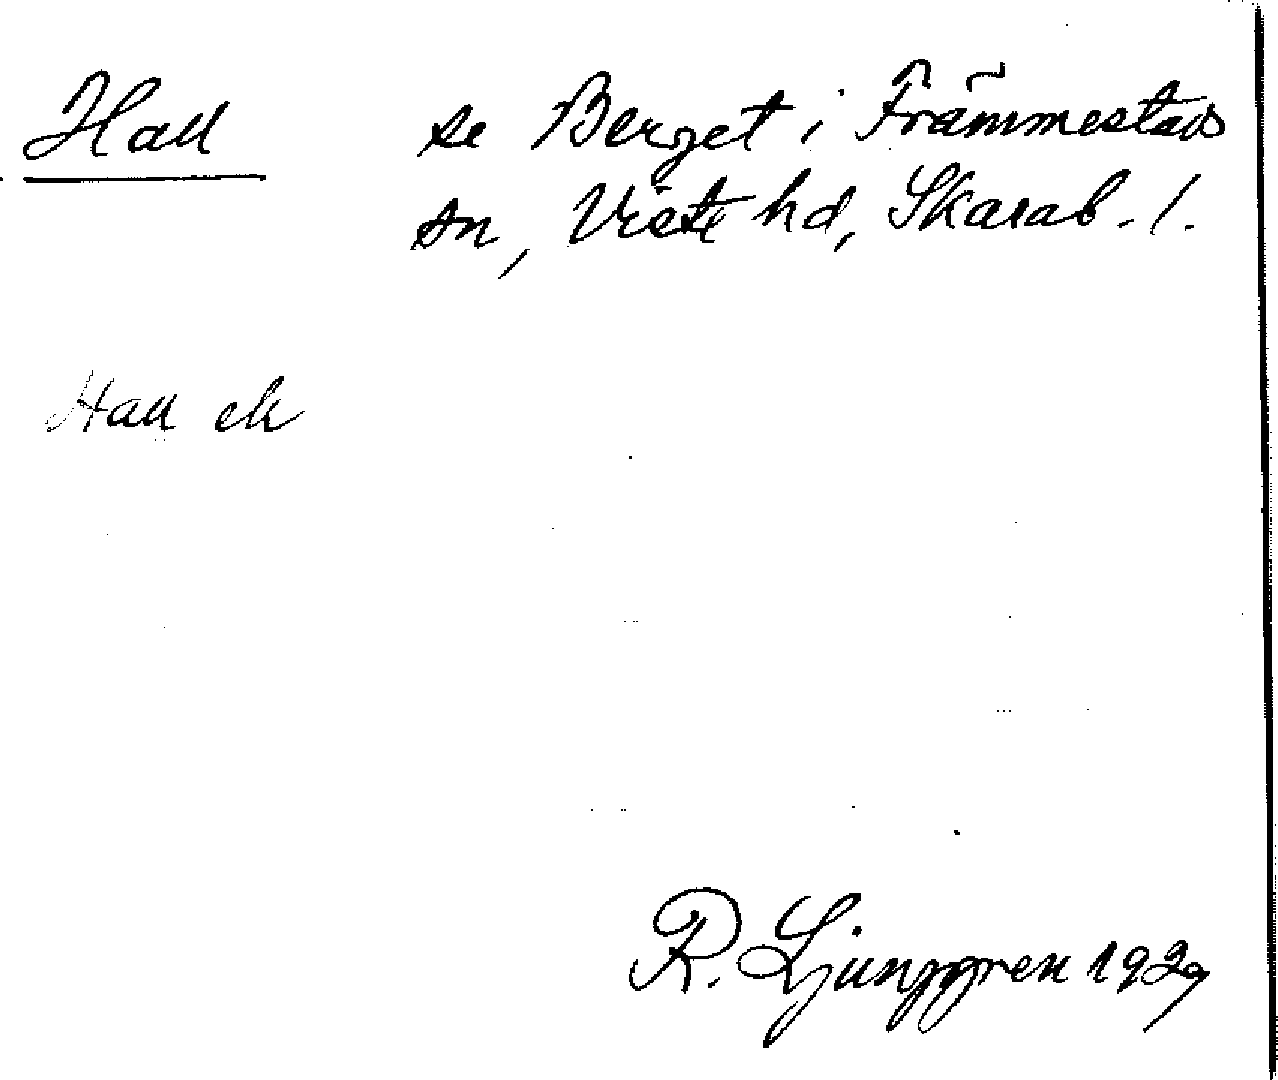 Hall se Berget i Främmestads
sn, Viste hd, Skarab. l.
Hall ek
R. Ljunggren 1929